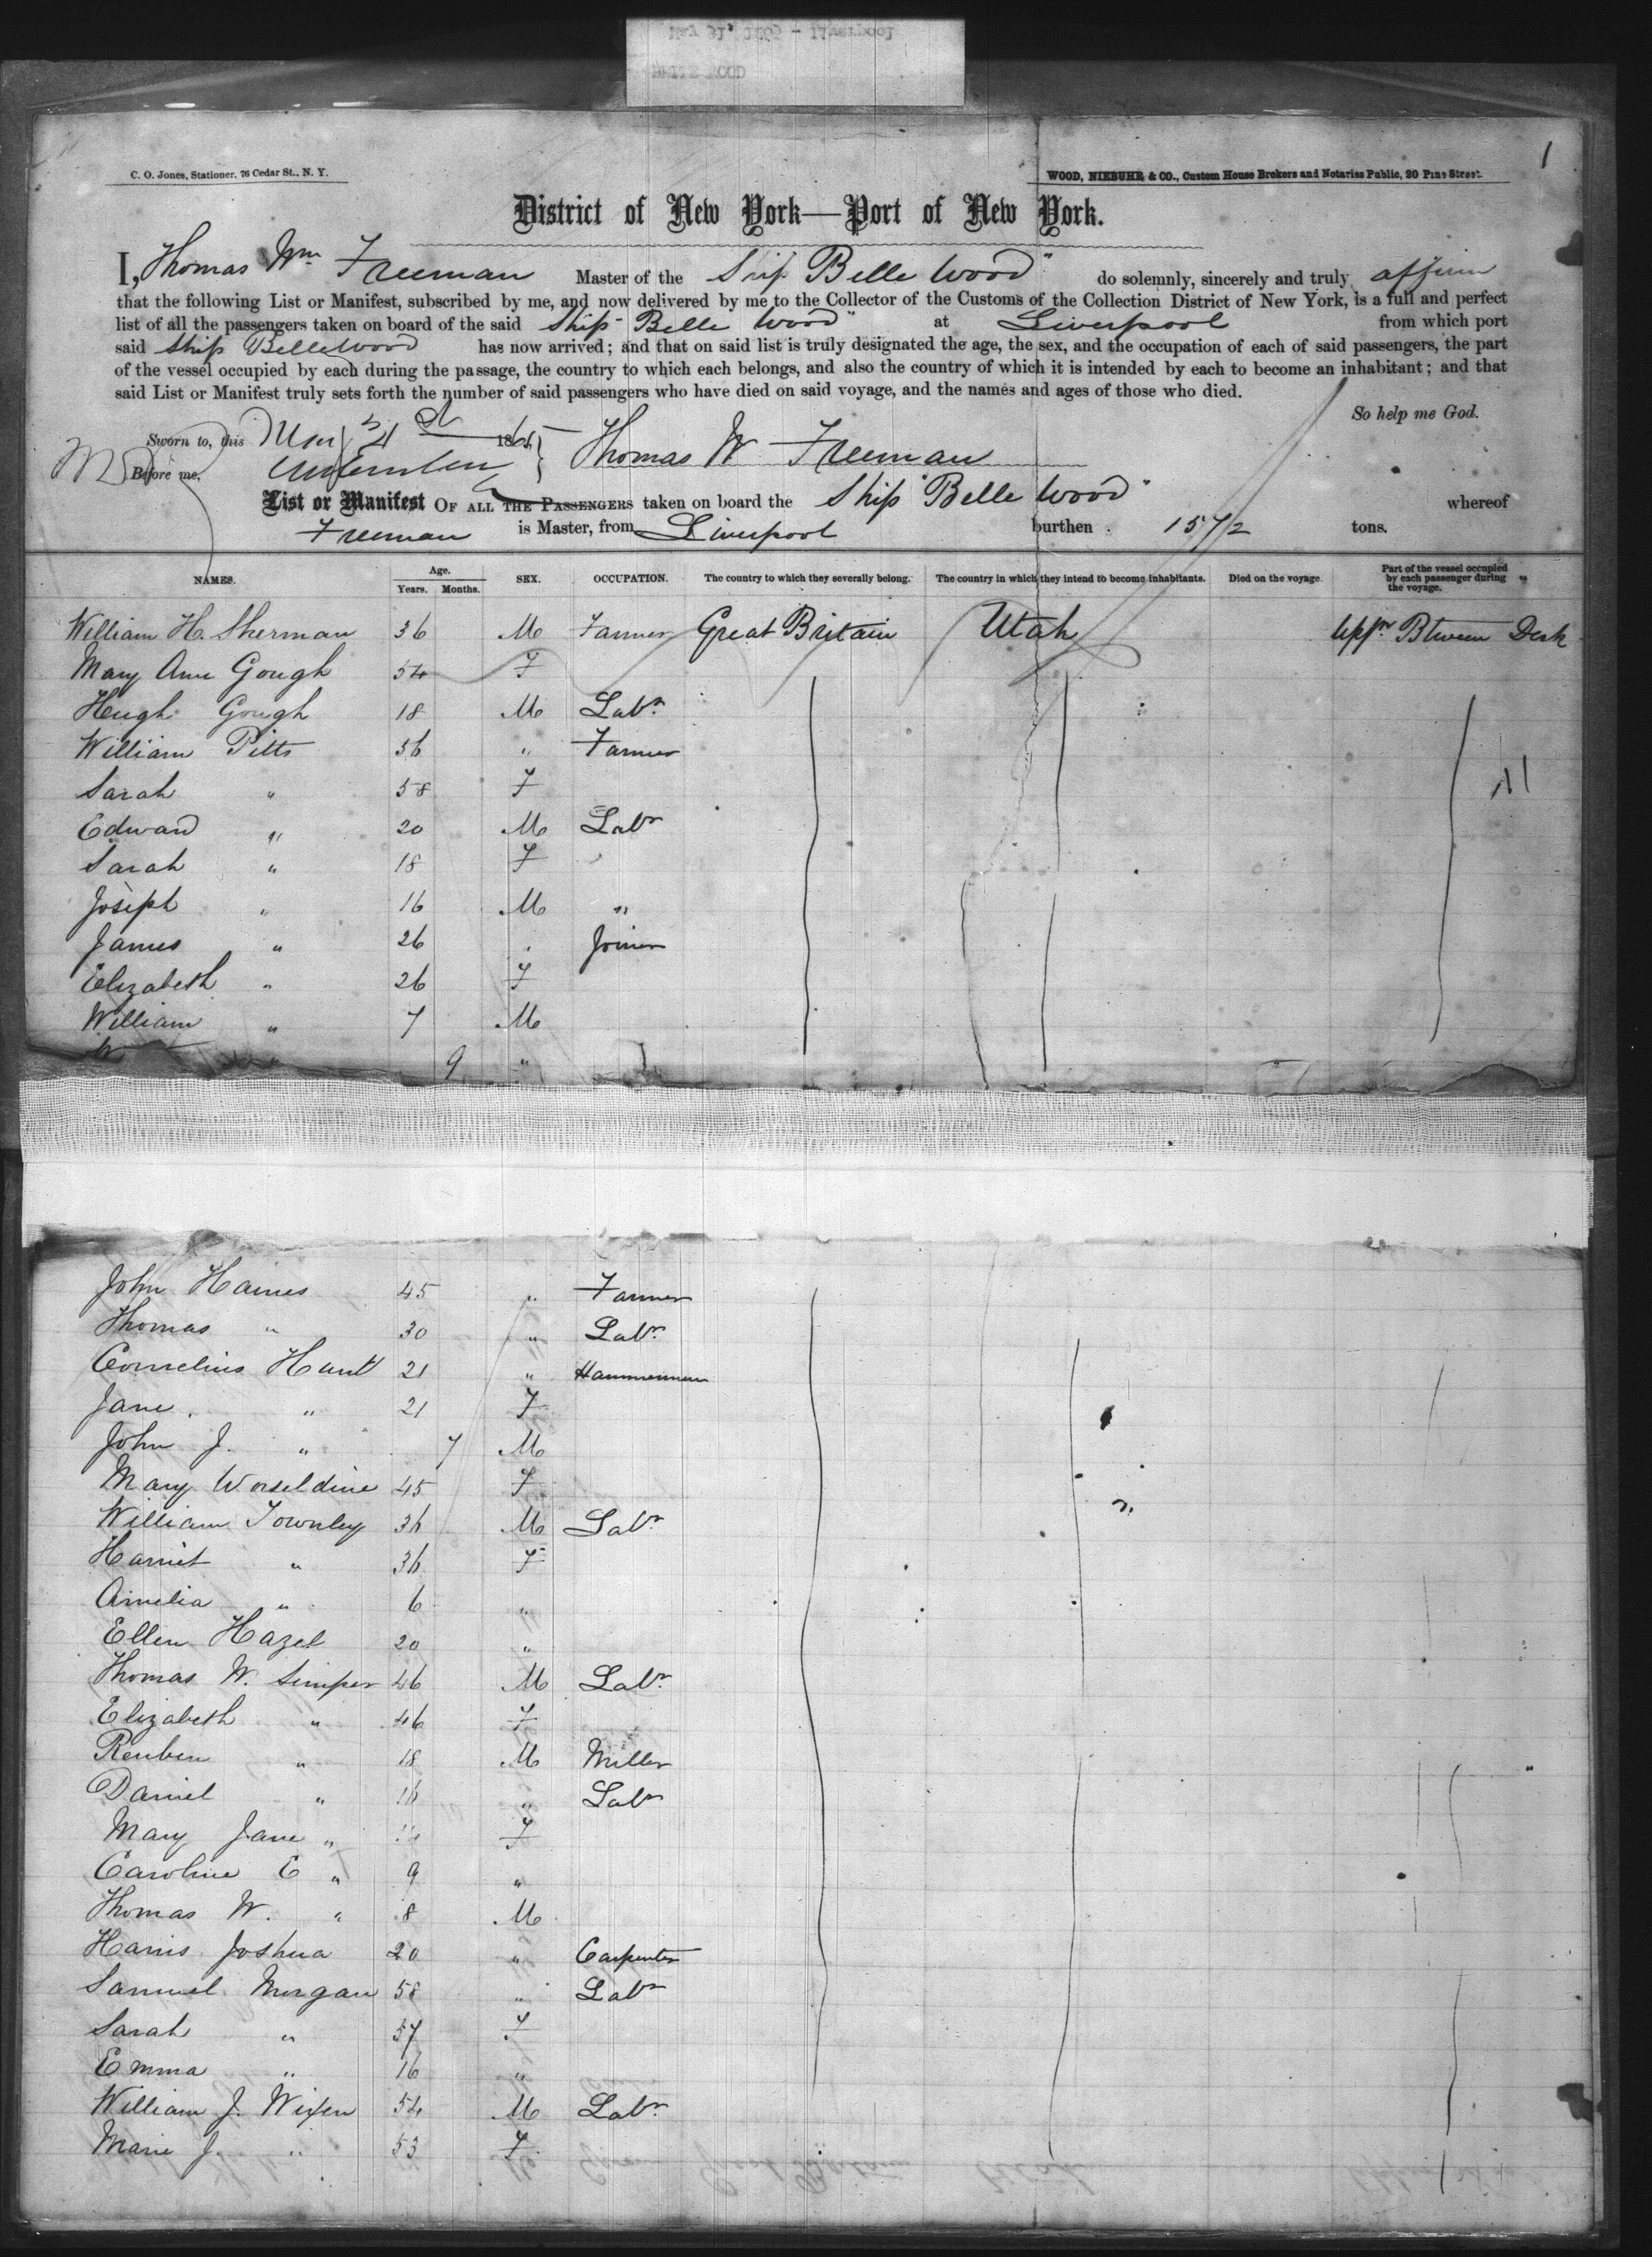 May 31, 1865 - Liverpool
BELLE WOOD
1
C. O. Jones, Stationer, 76 Cedar St., N. Y.
WOOD, NIEBUHR & CO., Custom House Brokers and Notaries Public, 20 Pine Street.
District of New York—Port of New York.
I, Thomas Wm Freeman Master of the Ship Belle Wood" do solemnly, sincerely and truly affirm
that the following List or Manifest, subscribed by me, and now delivered by me to the Collector of the Customs of the Collection District of New York, is a full and perfect
list of all the passengers taken on board of the said Ship "Belle Wood" at Liverpool from which port
said Ship Belle Wood has now arrived; and that on said list is truly designated the age, the sex, and the occupation of each of said passengers, the part
of the vessel occupied by each during the passage, the country to which each belongs, and also the country of which it is intended by each to become an inhabitant; and that
said List or Manifest truly sets forth the number of said passengers who have died on said voyage, and the names and ages of those who died.
So help me God.
Sworn to, this May 31st 1865 Thomas W Freeman
Before me,
List or Manifest OF ALL THE PASSENGERS taken on board the Ship "Belle Wood" whereof
Freeman is Master, from Liverpool burthen 1572 tons.
NAMES. Age. Years. Months. SEX. OCCUPATION. The country to which they severally belong. The country in which they intend to become inhabitants. Died on the voyage. Part of the vessel occupied by each passenger during the voyage.
William H. Sherman 36 M Farmer Great Britain Utah Uppr Btween Deck
Mary Ann Gough 54 F
Hugh Gough 18 M Labr
William Pitts 56 " Farmer
Sarah " 58 F
Edward " 20 M Labr
Sarah " 18 F
Joseph " 16 M "
James " 26 " Joiner
Elizabeth " 26 F
William " 7 M
" 9 "
John Haines 45 " Farmer
Thomas " 30 " Labr
Cornelius Hunt 21 " Hammerman
Jane " 21 F
John J. " 7 M
Mary Worseldine 45 F
William Townley 36 M Labr
Harriet " 36 F
Amelia " 6 "
Ellen Hazel 20 "
Thomas W. Simper 46 M Labr
Elizabeth " 46 F
Reuben " 18 M Miller
Daniel " 16 " Labr
Mary Jane " F
Caroline E " 9 "
Thomas W. " 8 M
Harris Joshua 20 " Carpenter
Samuel Morgan 58 " Labr
Sarah " 57 F
Emma " 16 "
William J. Wixen 54 M Labr
Marie J. " 53 F